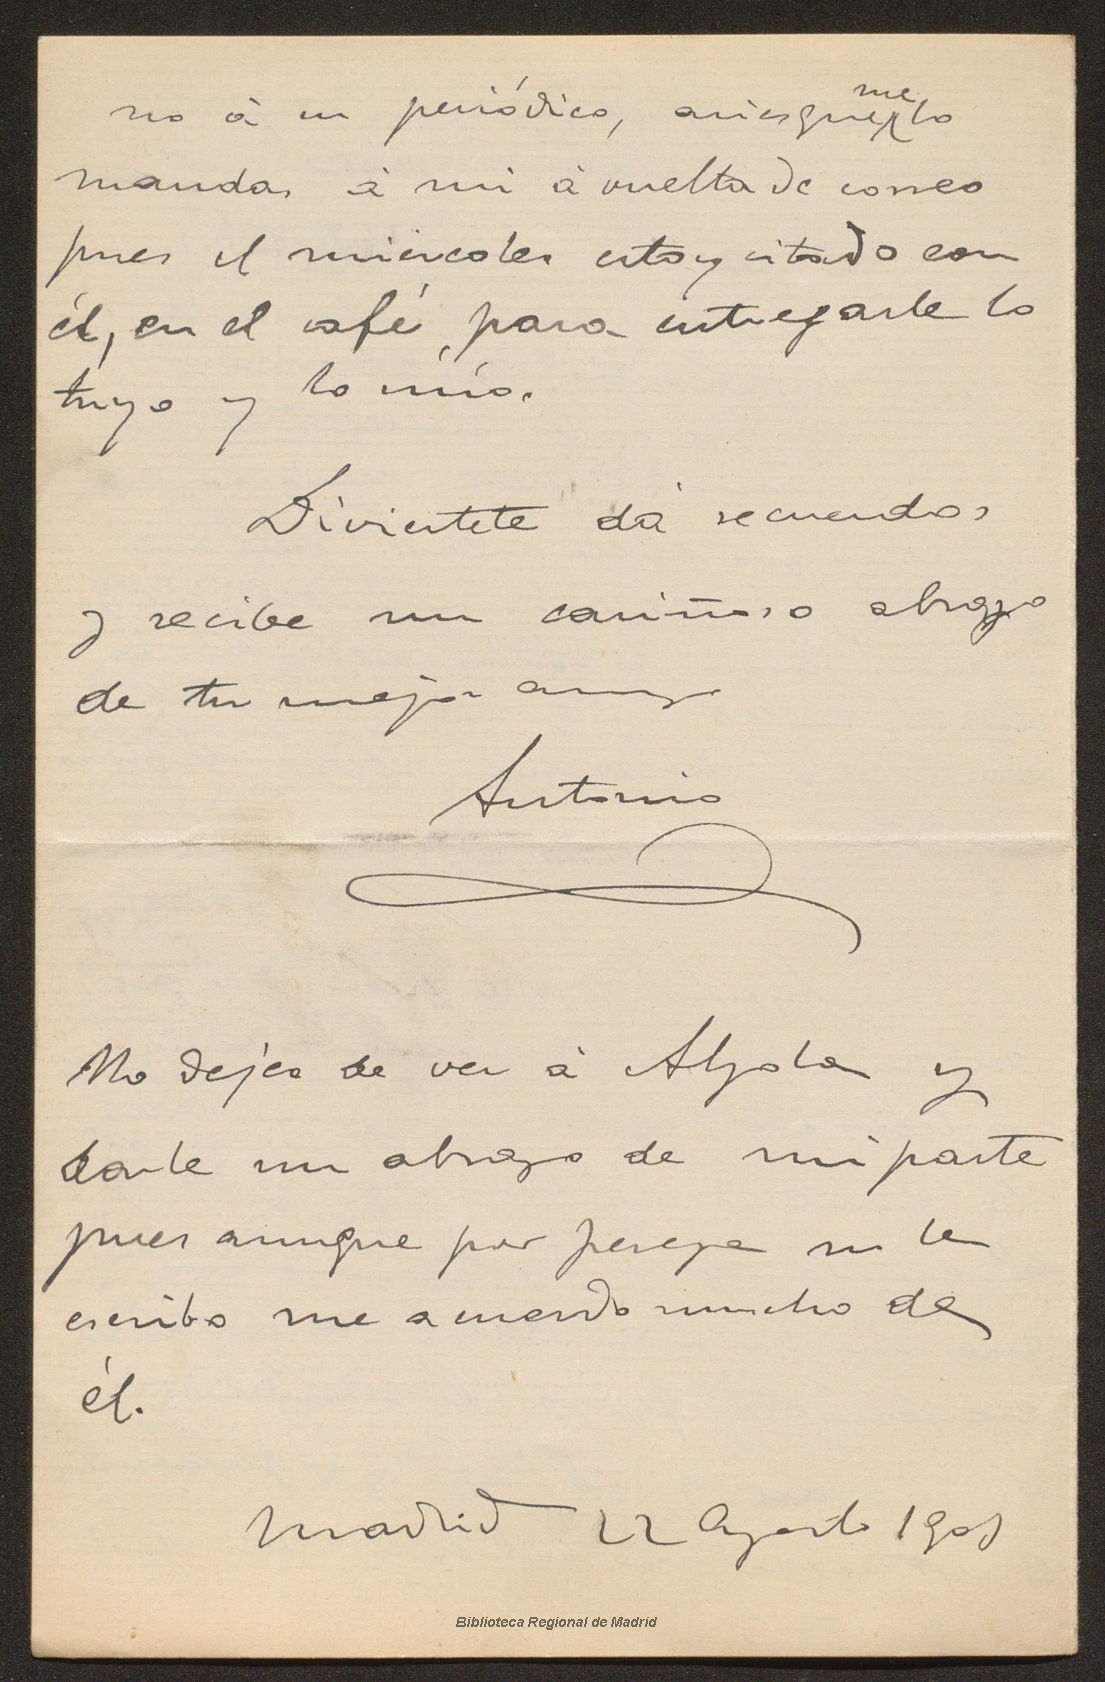 no à un periódico, asi es que me lo
mandas à mi à vuelta de correo
pues el miércoles estoy citado con
él, en el café, para entregarle lo
tuyo y lo mío.
Diviertete dá recuerdos
y recibe un cariñoso abrazo
de tu mejor amigo
Antonio
No dejes de ver à y
darle un abrazo de mi parte
pues aunque por pereza no le
escribo me acuerdo mucho de
él.
Madrid 22 Agosto
Biblioteca Regional de Madrid